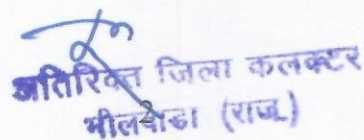 अतिरिक्त जिला कलक्टर
भीलवाडा (राज.)
2